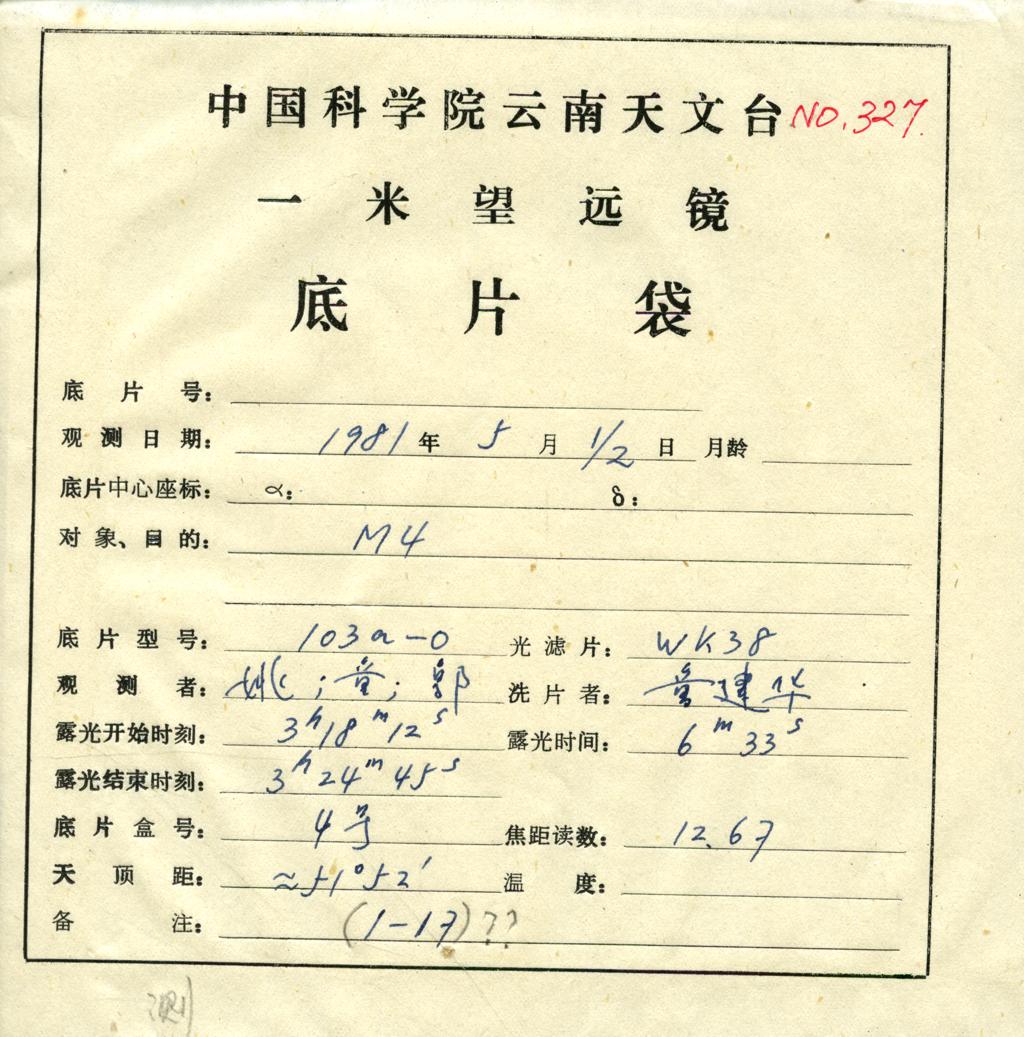 中国科学院云南天文台 NO.327.
一米望远镜
底片袋
底片号：
观测日期： 1981年 5月 1/2日 月龄
底片中心座标： α： δ：
对象、目的： M4
底片型号： 103a-0 光滤片： WK38
观测者： 姚；童；郭 洗片者： 童建华
露光开始时刻： 3h18m12s 露光时间： 6m33s
露光结束时刻： 3h24m45s
底片盒号： 4号 焦距读数： 12.67
天顶距： ≈51°52′ 温度：
备注： (1-17)??
测